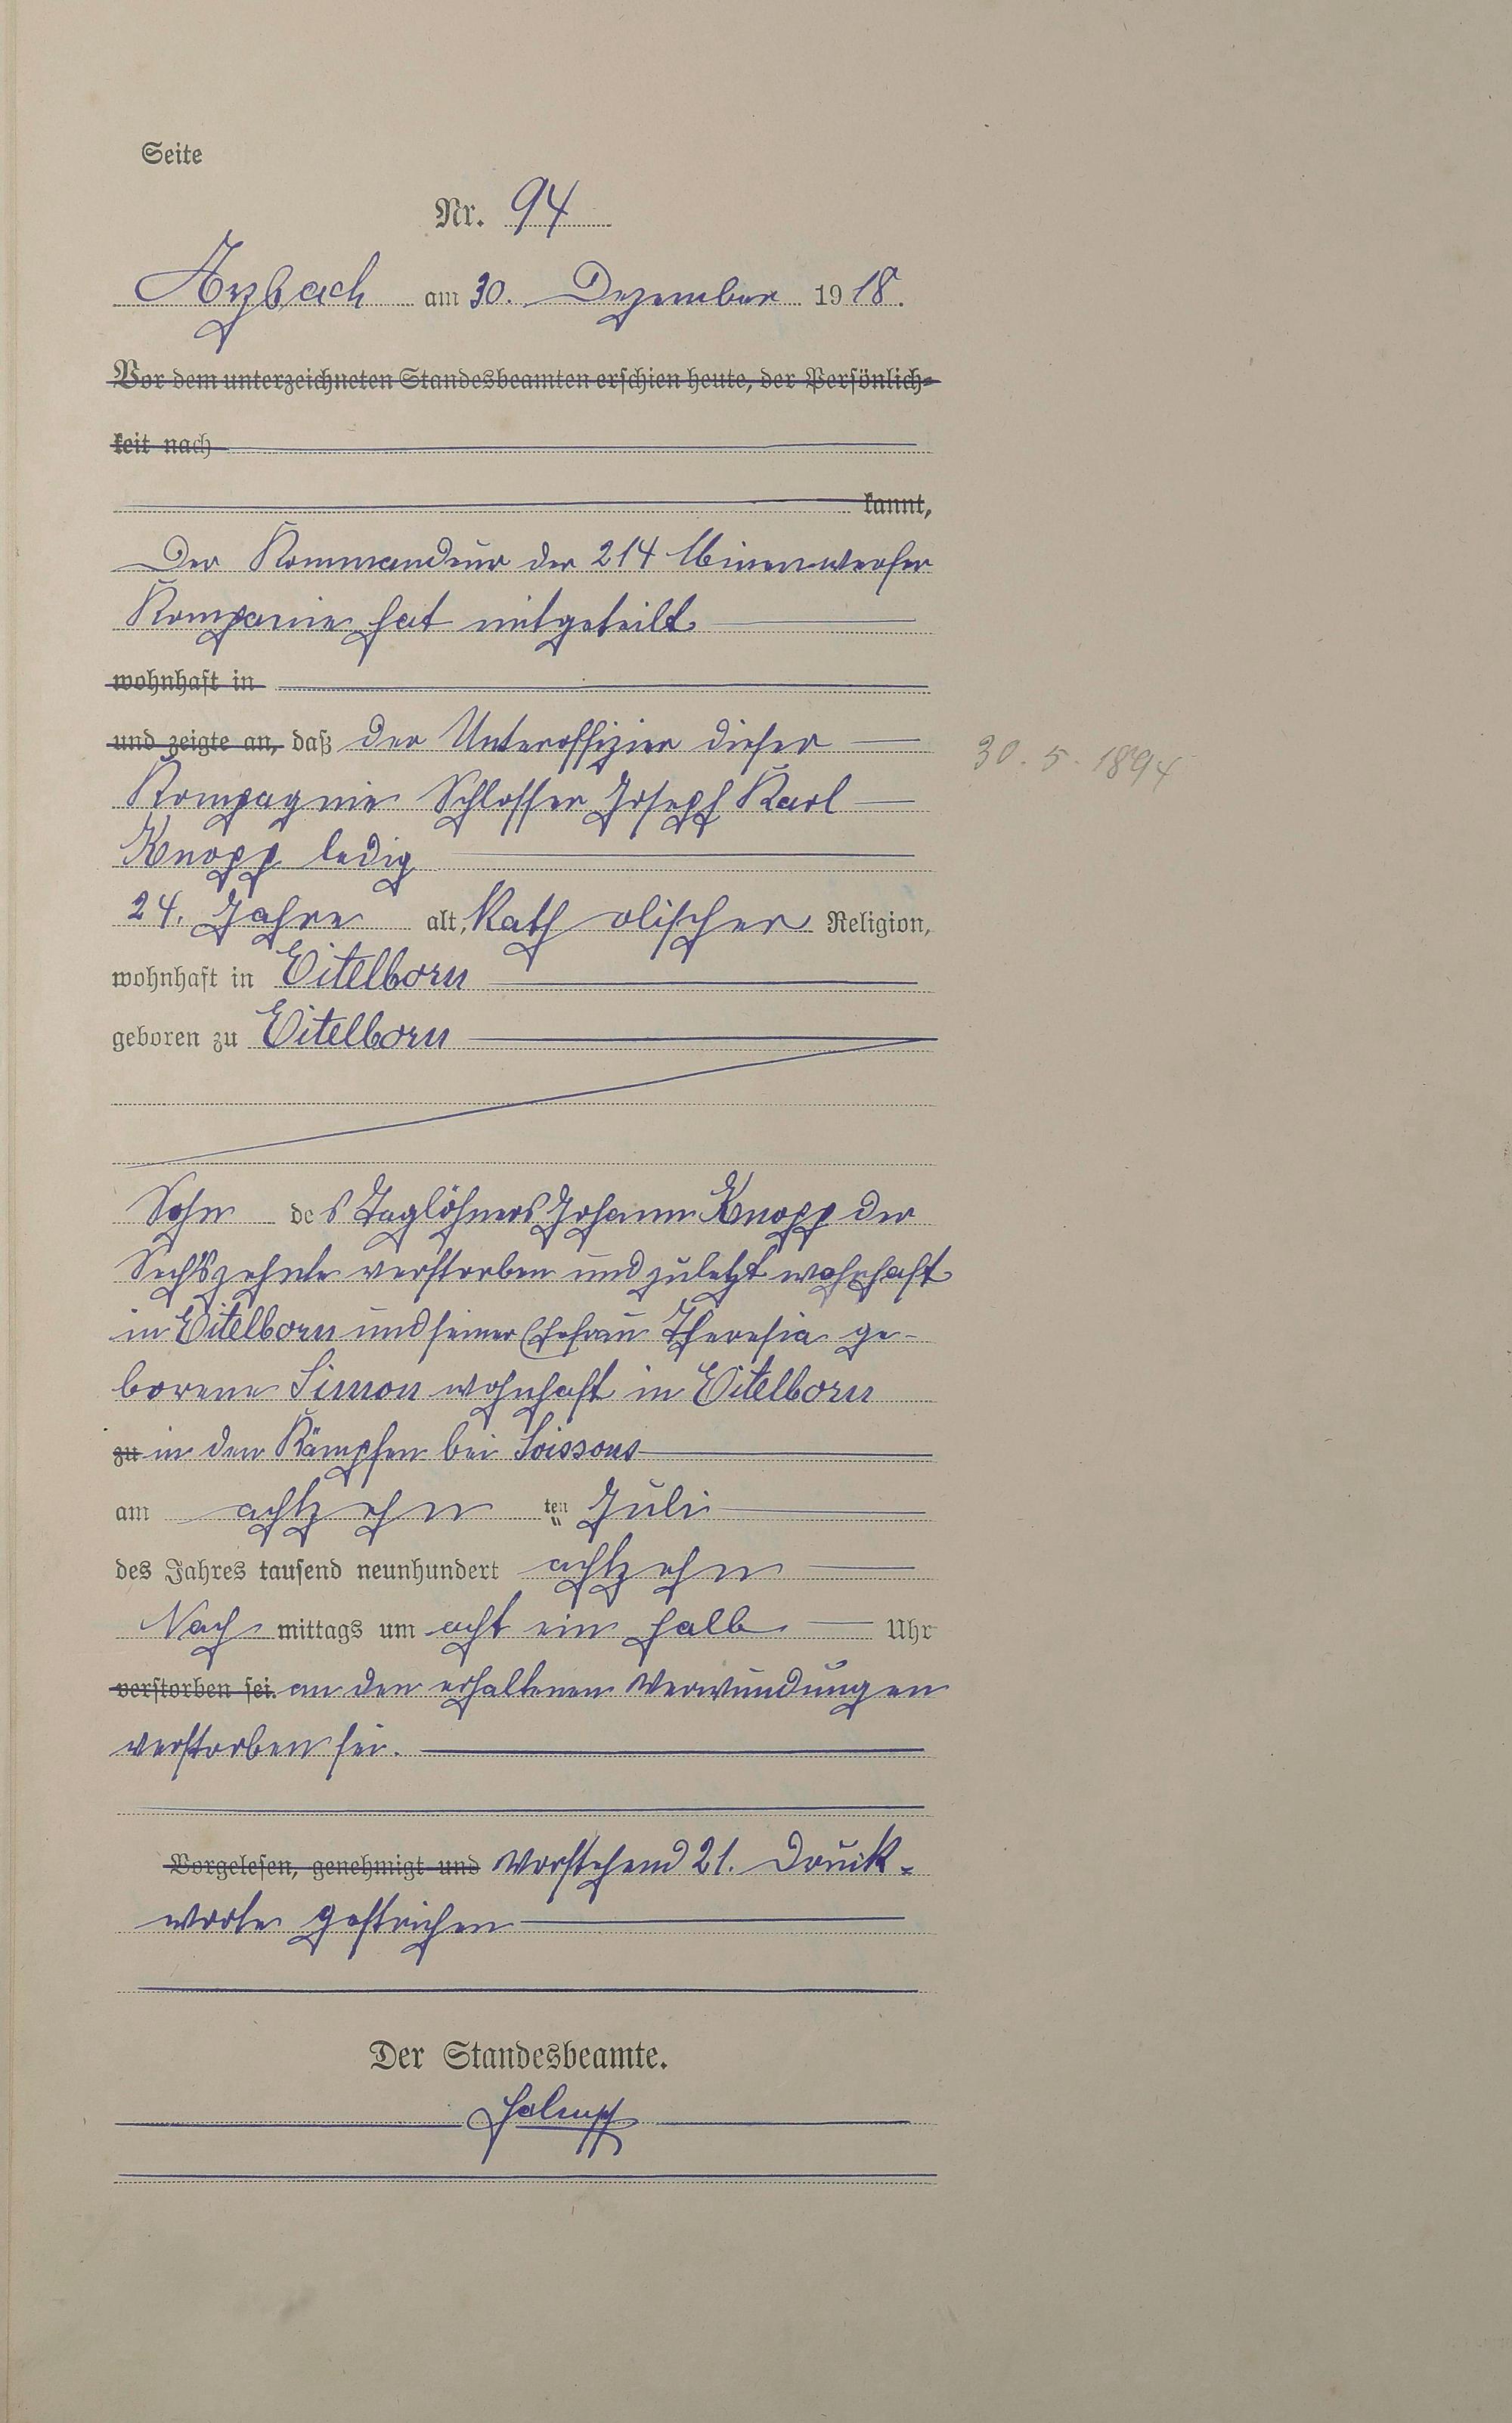 Seite
Nr. 94
Arzbach am 30. Dezember 1918.
Vor dem unterzeichneten Standesbeamten erschien heute, der Persönlich-
keit nach
kannt,
Der Kommandeur der 214 Minenwerfer
Kompanie hat mitgeteilt
wohnhaft in
und zeigte an, daß der Unteroffizier dieser
30. 5. 1894
Kompagnie Schlosser Joseph Karl
Knopp ledig
24. Jahre alt, katholischer Religion,
wohnhaft in Eitelborn
geboren zu Eitelborn
Sohn des Taglöhners Johann Knopp der
Sechszehnte verstorben und zuletzt wohnhaft
in Eitelborn und seiner Ehefrau Theresia ge-
borene Simon wohnhaft in Eitelborn
zu in den Kämpfen bei Soissons
am achtzehn ten Juli
des Jahres tausend neunhundert achtzehn
Nach mittags um acht ein halb Uhr
verstorben sei. an den erhaltenen Verwundungen
verstorben sei.
Vorgelesen, genehmigt und Vorstehend 21. Druck-
worte gestrichen
Der Standesbeamte.